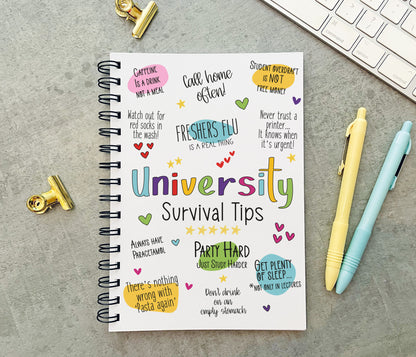 CAFFEINE
IS A DRINK
NOT A MEAL
Call home
often!
STUDENT OVERDRAFT
IS NOT
FREE MONEY
Watch out for
red socks in
the wash!
FRESHERS FLU
IS A REAL THING
Never trust a
printer...
It knows when
it's urgent!
University
Survival Tips
ALWAYS HAVE
PARACETAMOL
PARTY HARD
JUST STUDY HARDER
GET PLENTY
OF SLEEP...
*NOT ONLY IN LECTURES
There's nothing
wrong with
'Pasta again'
Don't drink
on an
empty stomach